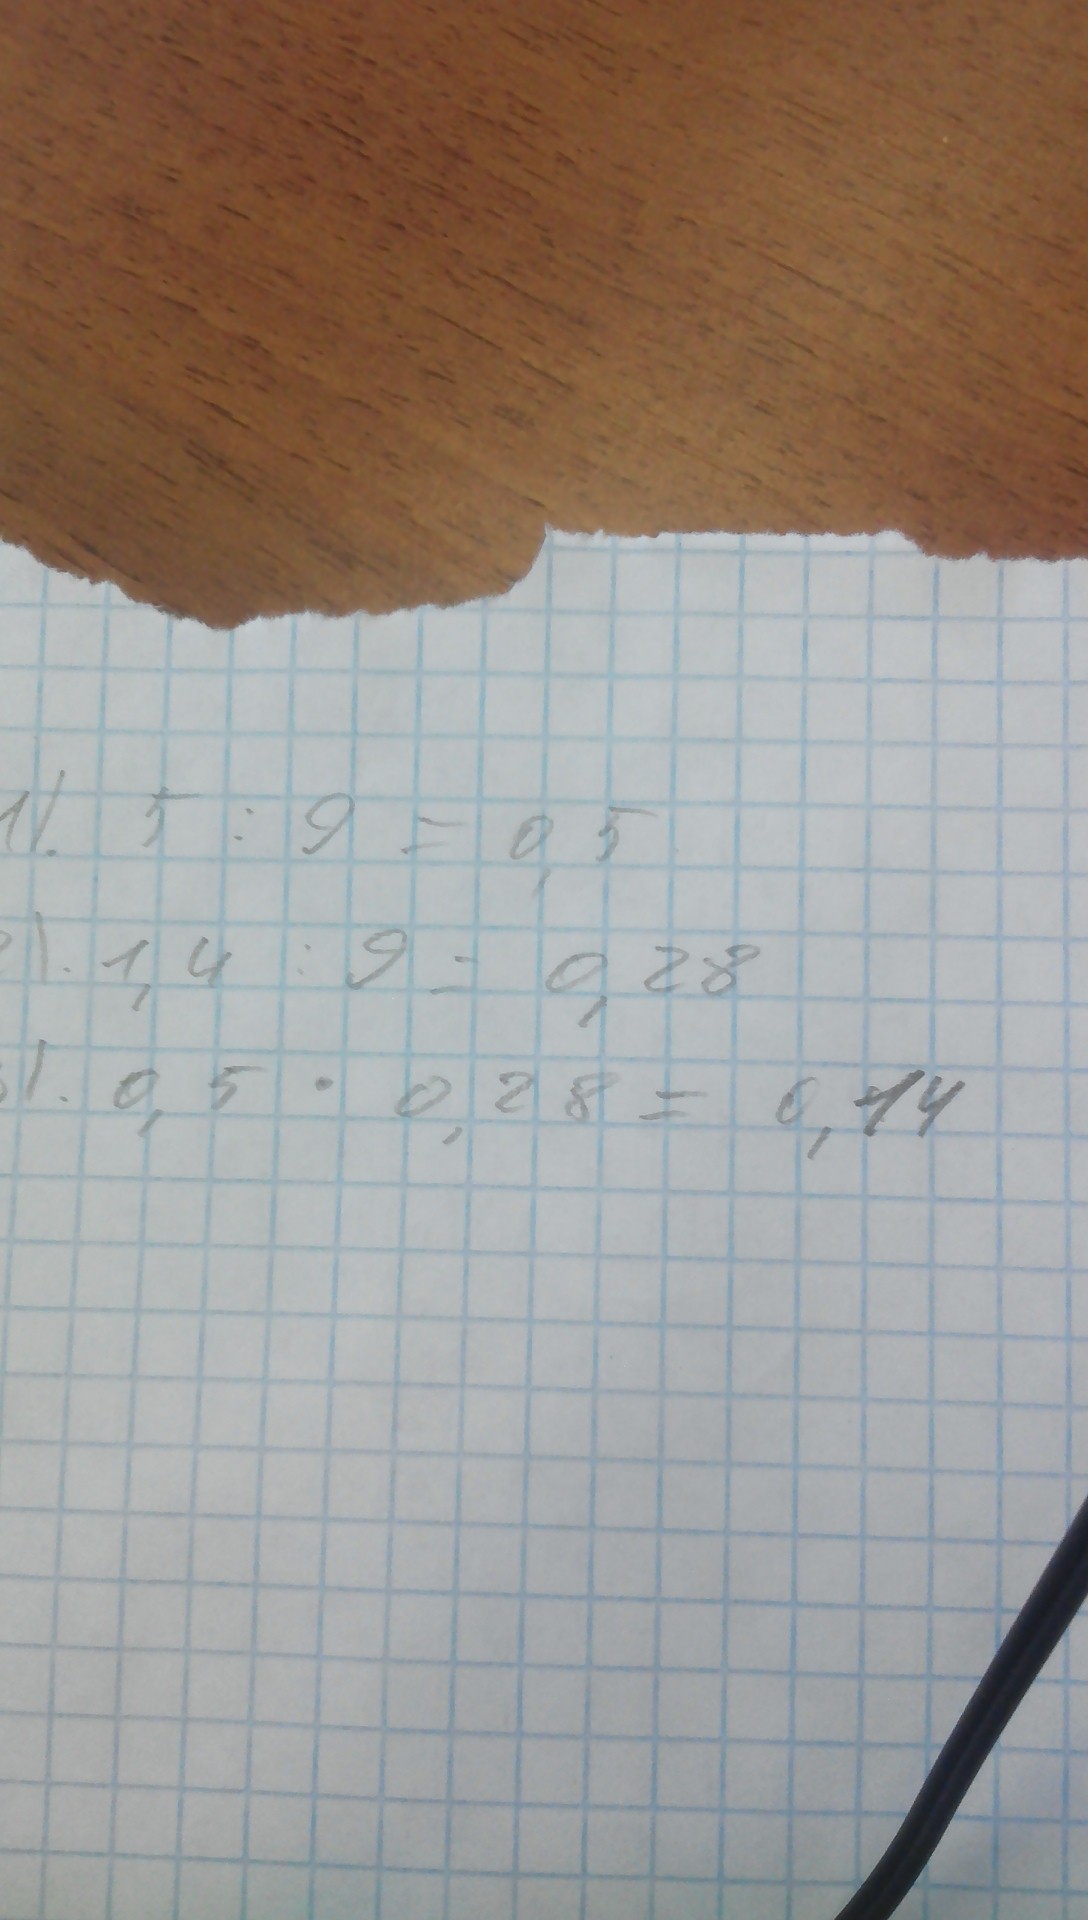 1). 5 : 9 = 0,5
2). 1,4 : 9 = 0,28
3). 0,5 · 0,28 = 0,14